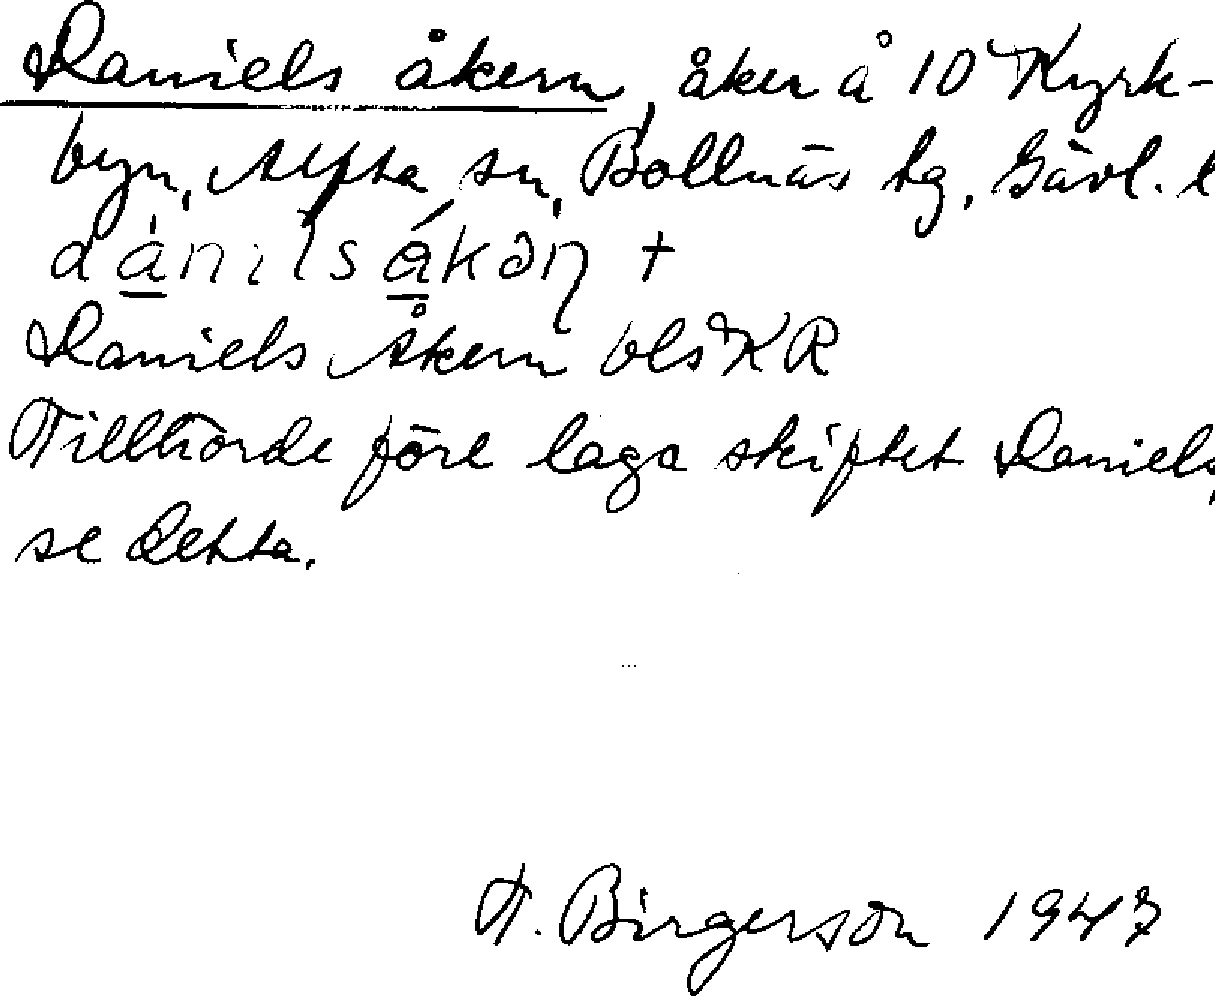 Daniels åkern, åker å 10 Kyrk-
byn, Alfta sn, Bollnäs tg, Gävl. l
dánilsákəṇ +
Daniels Åkern bls KR
Tillhörde före laga skiftet Daniels,
se detta.
T. Birgerson 1947